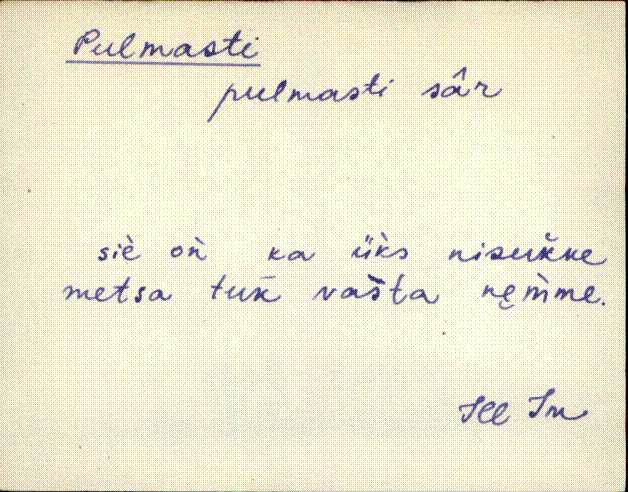 Pulmasti
pulmasti sâr
siè oǹ ka üks nisukke
metsa tuk̆ vašta nęm̀me.
Jll Jn